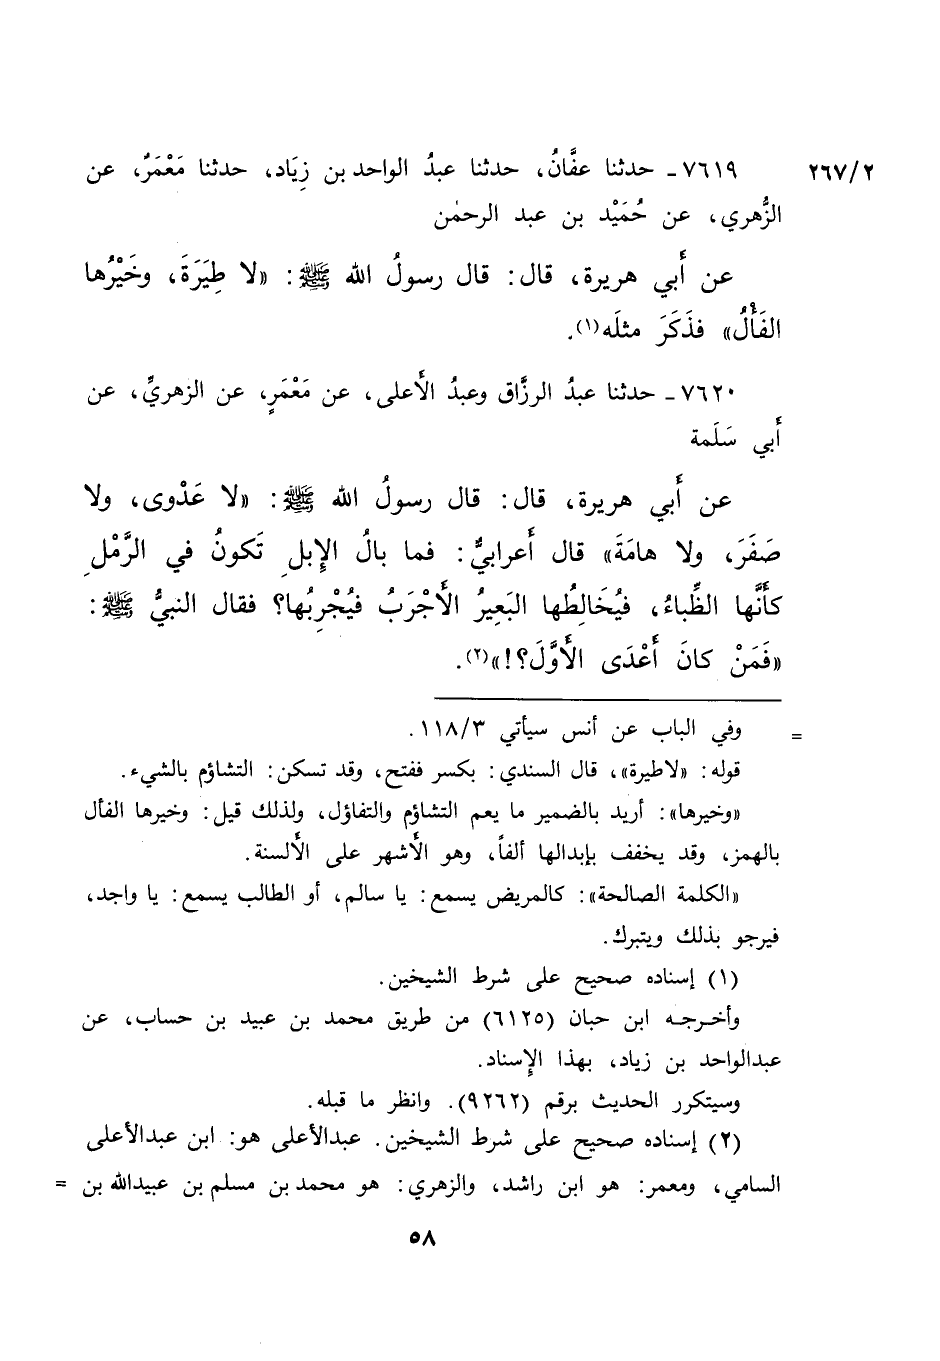 ٢٦٧/٢ ٧٦١٩ ـ حدثنا عفَّانُ، حدثنا عبدُ الواحد بن زِيَاد، حدثنا مَعْمَرٌ، عن
الزُّهري، عن حُمَيْد بن عبد الرحمٰن
عن أَبي هريرة، قال: قال رسولُ الله ﷺ: «لا طِيَرَةَ، وخَيْرُها
الفَأْلُ» فذَكَرَ مثلَه(١).
٧٦٢٠ ـ حدثنا عبدُ الرزَّاق وعبدُ الأَعلى، عن مَعْمَرٍ، عن الزهريِّ، عن
أَبي سَلَمة
عن أَبي هريرة، قال: قال رسولُ الله ﷺ: «لا عَدْوى، ولا
صَفَرَ، ولا هامَةَ» قال أَعرابيٌّ: فما بالُ الإِبلِ تَكونُ في الرَّمْلِ
كأَنَّها الظِّباءُ، فيُخَالِطُها البَعِيرُ الأَجْرَبُ فيُجْرِبُها؟ فقال النبيُّ ﷺ:
«فَمَنْ كانَ أَعْدَى الأَوَّلَ؟!»(٢).
= وفي الباب عن أنس سيأتي ١١٨/٣.
قوله: «لاطيرة»، قال السندي: بكسر ففتح، وقد تسكن: التشاؤم بالشيء.
«وخيرها»: أريد بالضمير ما يعم التشاؤم والتفاؤل، ولذلك قيل: وخيرها الفأل
بالهمز، وقد يخفف بإبدالها ألفاً، وهو الأَشهر على الأَلسنة.
«الكلمة الصالحة»: كالمريض يسمع: يا سالم، أو الطالب يسمع: يا واجد،
فيرجو بذلك ويتبرك.
(١) إسناده صحيح على شرط الشيخين.
وأخرجه ابن حبان (٦١٢٥) من طريق محمد بن عبيد بن حساب، عن
عبدالواحد بن زياد، بهذا الإِسناد.
وسيتكرر الحديث برقم (٩٢٦٢). وانظر ما قبله.
(٢) إسناده صحيح على شرط الشيخين. عبدالأعلى هو: ابن عبدالأعلى
السامي، ومعمر: هو ابن راشد، والزهري: هو محمد بن مسلم بن عبيدالله بن =
٥٨